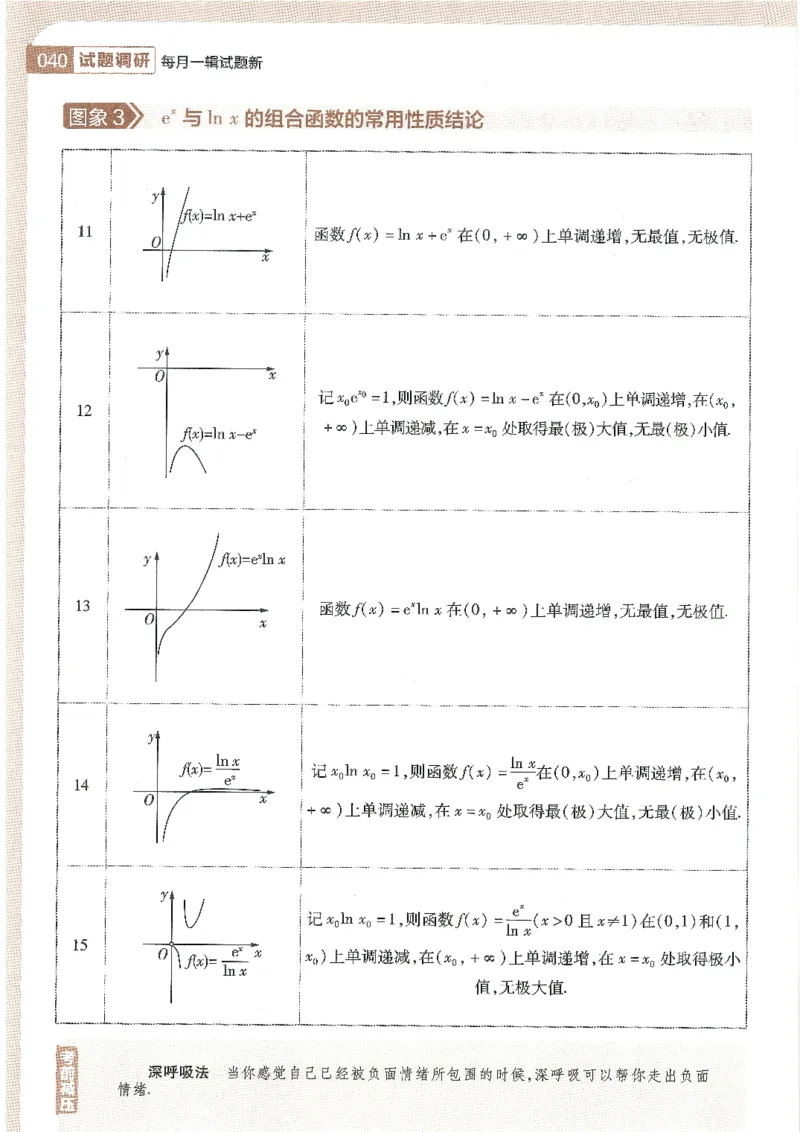 040 试题调研 每月一辑试题新
图象3 eˣ与ln x的组合函数的常用性质结论
11
y
f(x)=ln x+eˣ
O
x
函数f(x)=ln x+eˣ在(0,+∞)上单调递增,无最值,无极值.
12
y
O
x
f(x)=ln x-eˣ
记x₀e^{x₀}=1,则函数f(x)=ln x-eˣ在(0,x₀)上单调递增,在(x₀,
+∞)上单调递减,在x=x₀处取得最(极)大值,无最(极)小值.
13
y
f(x)=eˣln x
O
x
函数f(x)=eˣln x在(0,+∞)上单调递增,无最值,无极值.
14
y
f(x)=\frac{ln x}{eˣ}
O
x
记x₀ln x₀=1,则函数f(x)=\frac{ln x}{eˣ}在(0,x₀)上单调递增,在(x₀,
+∞)上单调递减,在x=x₀处取得最(极)大值,无最(极)小值.
15
y
O
x
f(x)=\frac{eˣ}{ln x}
记x₀ln x₀=1,则函数f(x)=\frac{eˣ}{ln x}(x>0且x≠1)在(0,1)和(1,
x₀)上单调递减,在(x₀,+∞)上单调递增,在x=x₀处取得极小
值,无极大值.
考前减压
深呼吸法 当你感觉自己已经被负面情绪所包围的时候,深呼吸可以帮你走出负面
情绪.